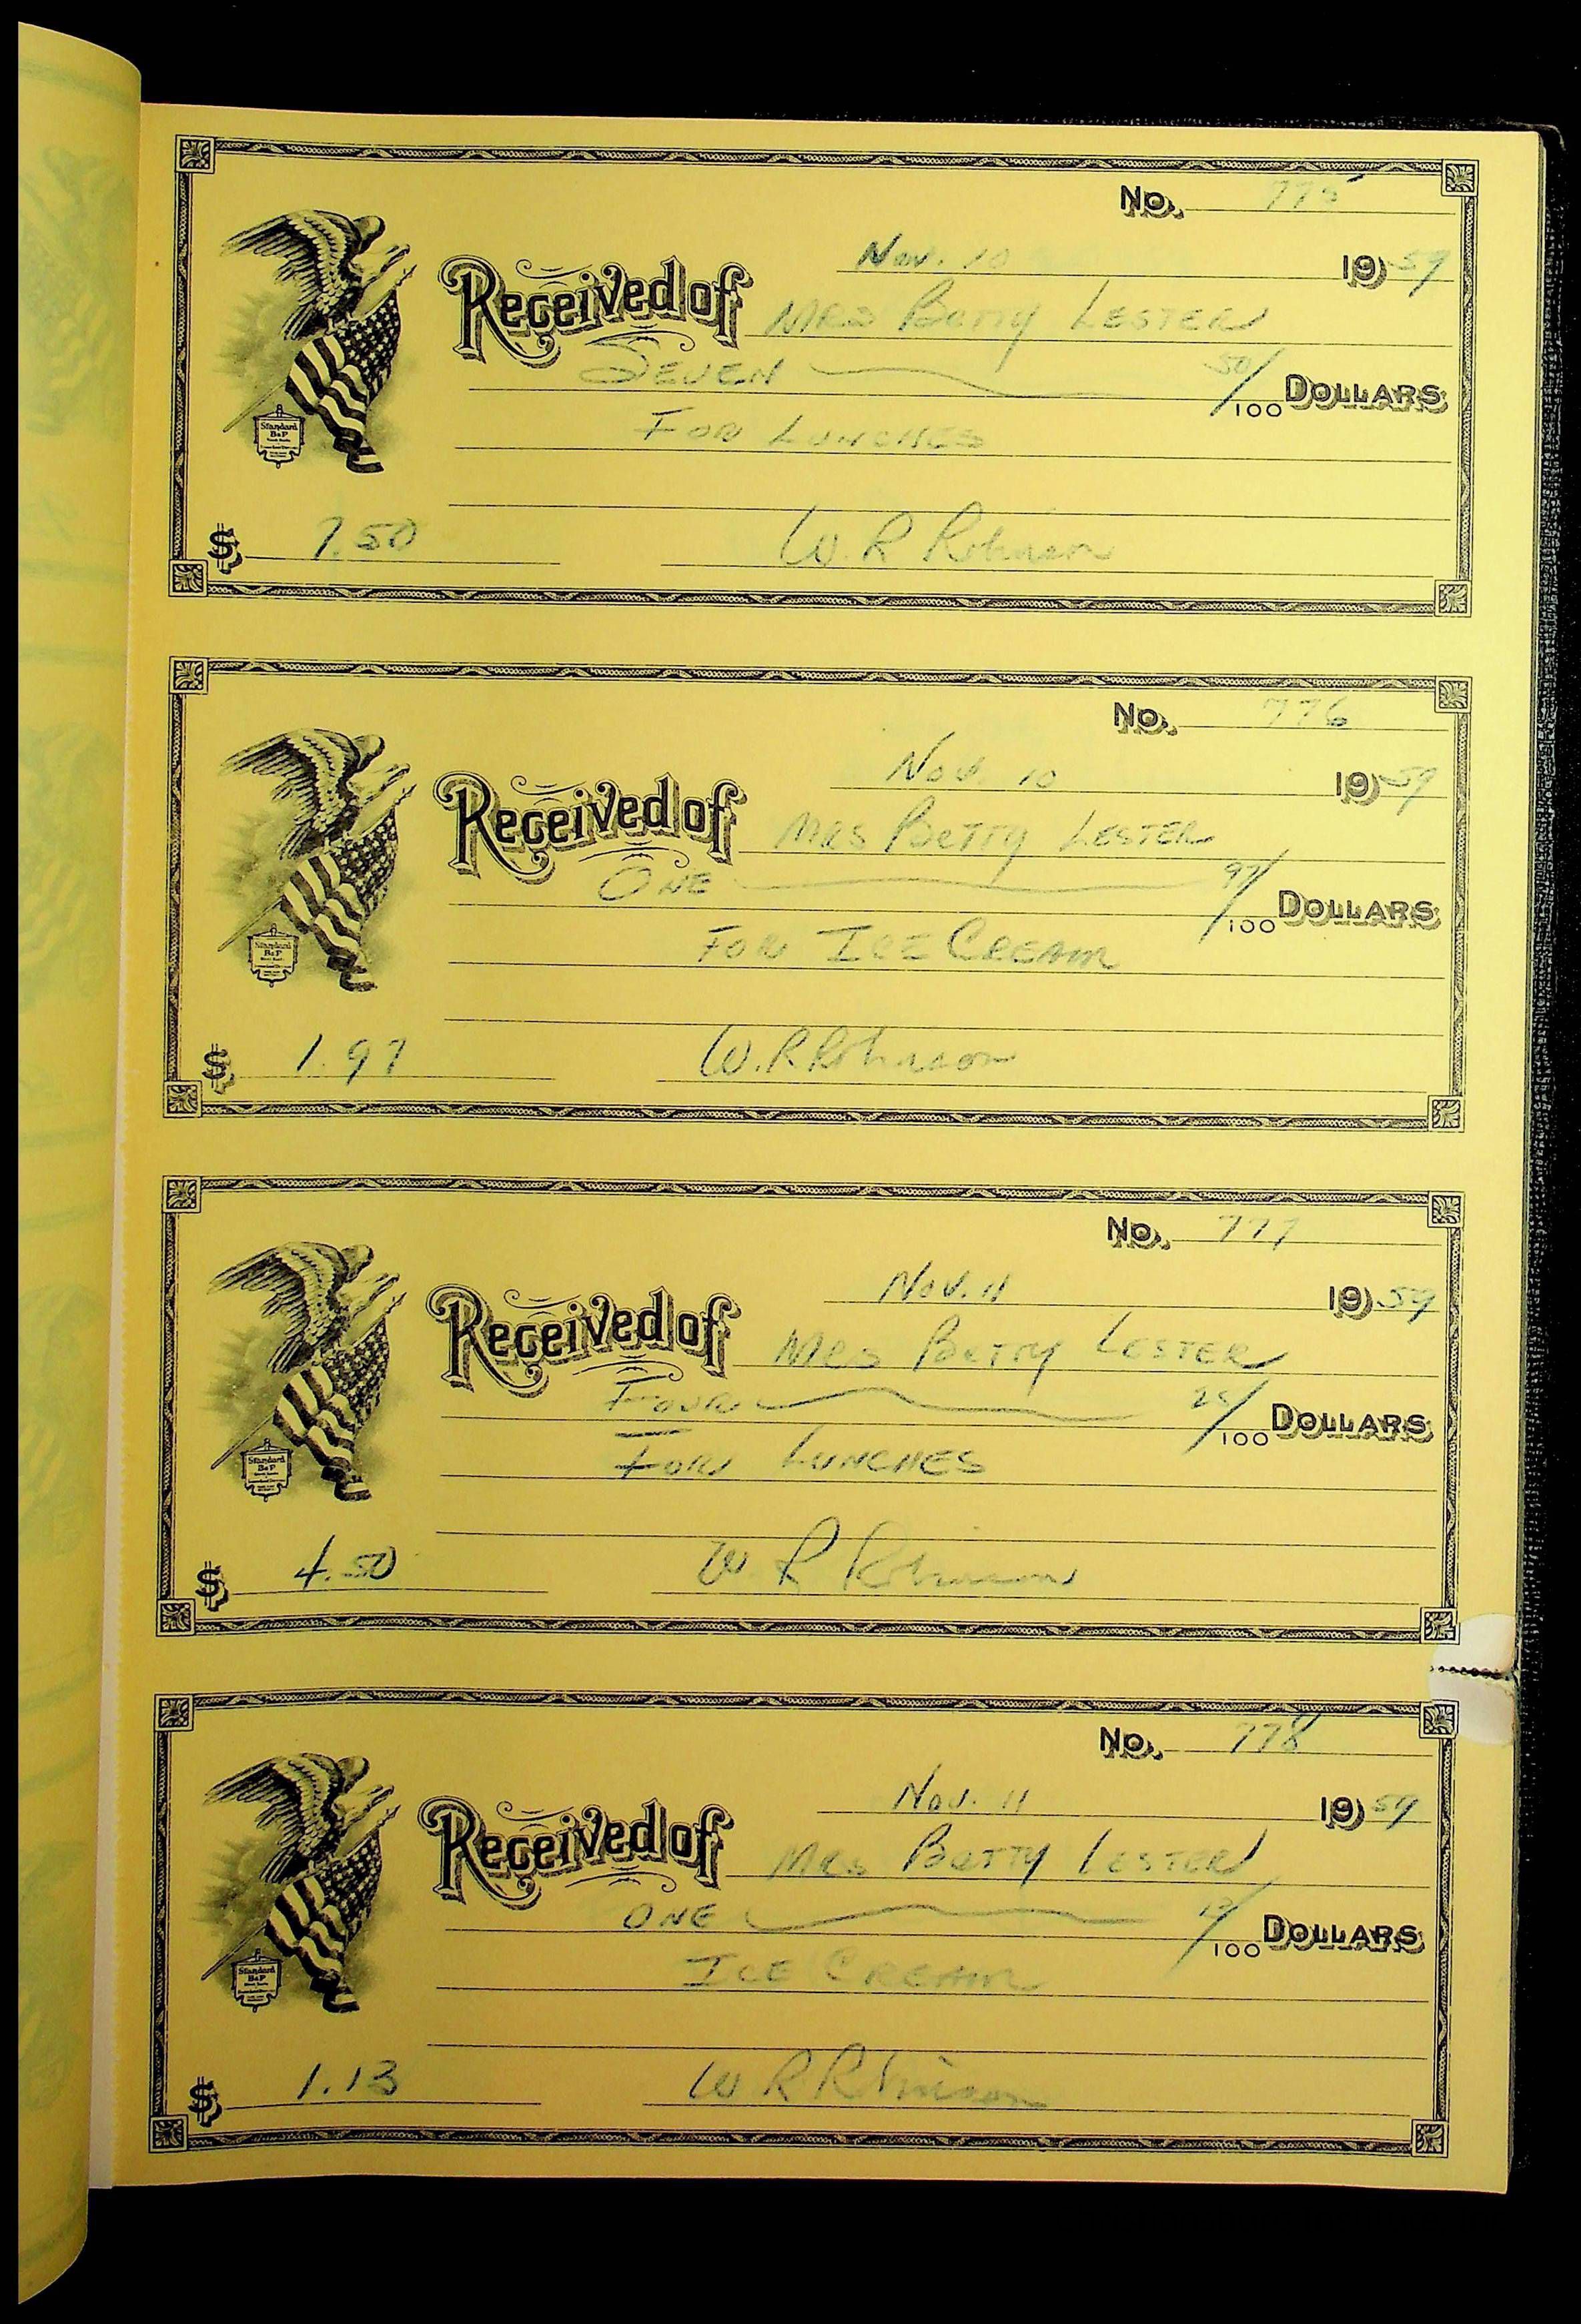 No. 775
Nov. 10 1959
Received of Mrs Betty Lester
Seven 50/100 Dollars
For Lunches
$ 7.50 W. R Robinson
Standard
B&P
No. 776
Nov. 10 1959
Received of Mrs Betty Lester
One 97/100 Dollars
For Ice Cream
$ 1.97 W. R Robinson
Standard
B&P
No. 777
Nov. 11 1959
Received of Mrs Betty Lester
Four 25/100 Dollars
For Lunches
$ 4.50 W R Robinson
Standard
B&P
No. 778
Nov. 11 1959
Received of Mrs Betty Lester
One 13/100 Dollars
Ice Cream
$ 1.13 W R Robinson
Standard
B&P